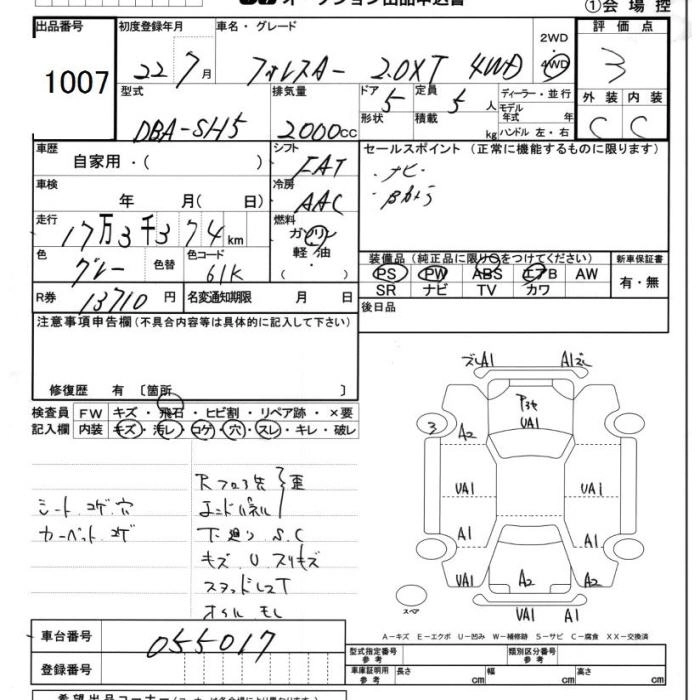 オークション出品申込書
①会場控
出品番号 初度登録年月 車名・グレード 2WD 評価点
1007 22 7月 フォレスター 2.0XT 4WD 4WD 3
型式 排気量 ドア 定員 ディーラー・並行 外装 内装
DBA-SH5 2000cc 5 5人 モデル年式 年 C C
形状 積載 kg ハンドル 左・右
車歴 シフト セールスポイント (正常に機能するものに限ります)
自家用・( ) FAT ・ナビ・
車検 冷房 ・Bカメラ
年 月( 日) AAC
走行 燃料
17万3千374km ガソリン
色 色替 色コード 軽油 装備品 (純正品に限り○をつけてください) 新車保証書
グレー 61K ( ・ ) PS PW ABS エアB AW 有・無
SR ナビ TV カワ
R券 13710円 名変通知期限 月 日 後日品
注意事項申告欄(不具合内容等は具体的に記入して下さい)
修復歴 有 〔箇所 〕
検査員 FW キズ・飛石・ヒビ割・リペア跡・×要
記入欄 内装 キズ・汚レ・コゲ・穴・スレ・キレ・破レ
シート.コゲ.穴
カーペット.コゲ
Rフロア先 歪
エンドパネル
下廻り S.C
キズ.U.スリキズ
スタッドレスT
オイルモレ
ズレA1 A1ズレ
3 A2 UA1
UA1 UA1
A1 A1
UA1 A2 A2
スペア UA1 A1
A-キズ E-エクボ U-凹み W-補修跡 S-サビ C-腐食 XX-交換済
車台番号 055017
型式指定番号 参考 類別区分番号 参考
登録番号 車庫証明用 参考 長さ cm 幅 cm 高さ cm